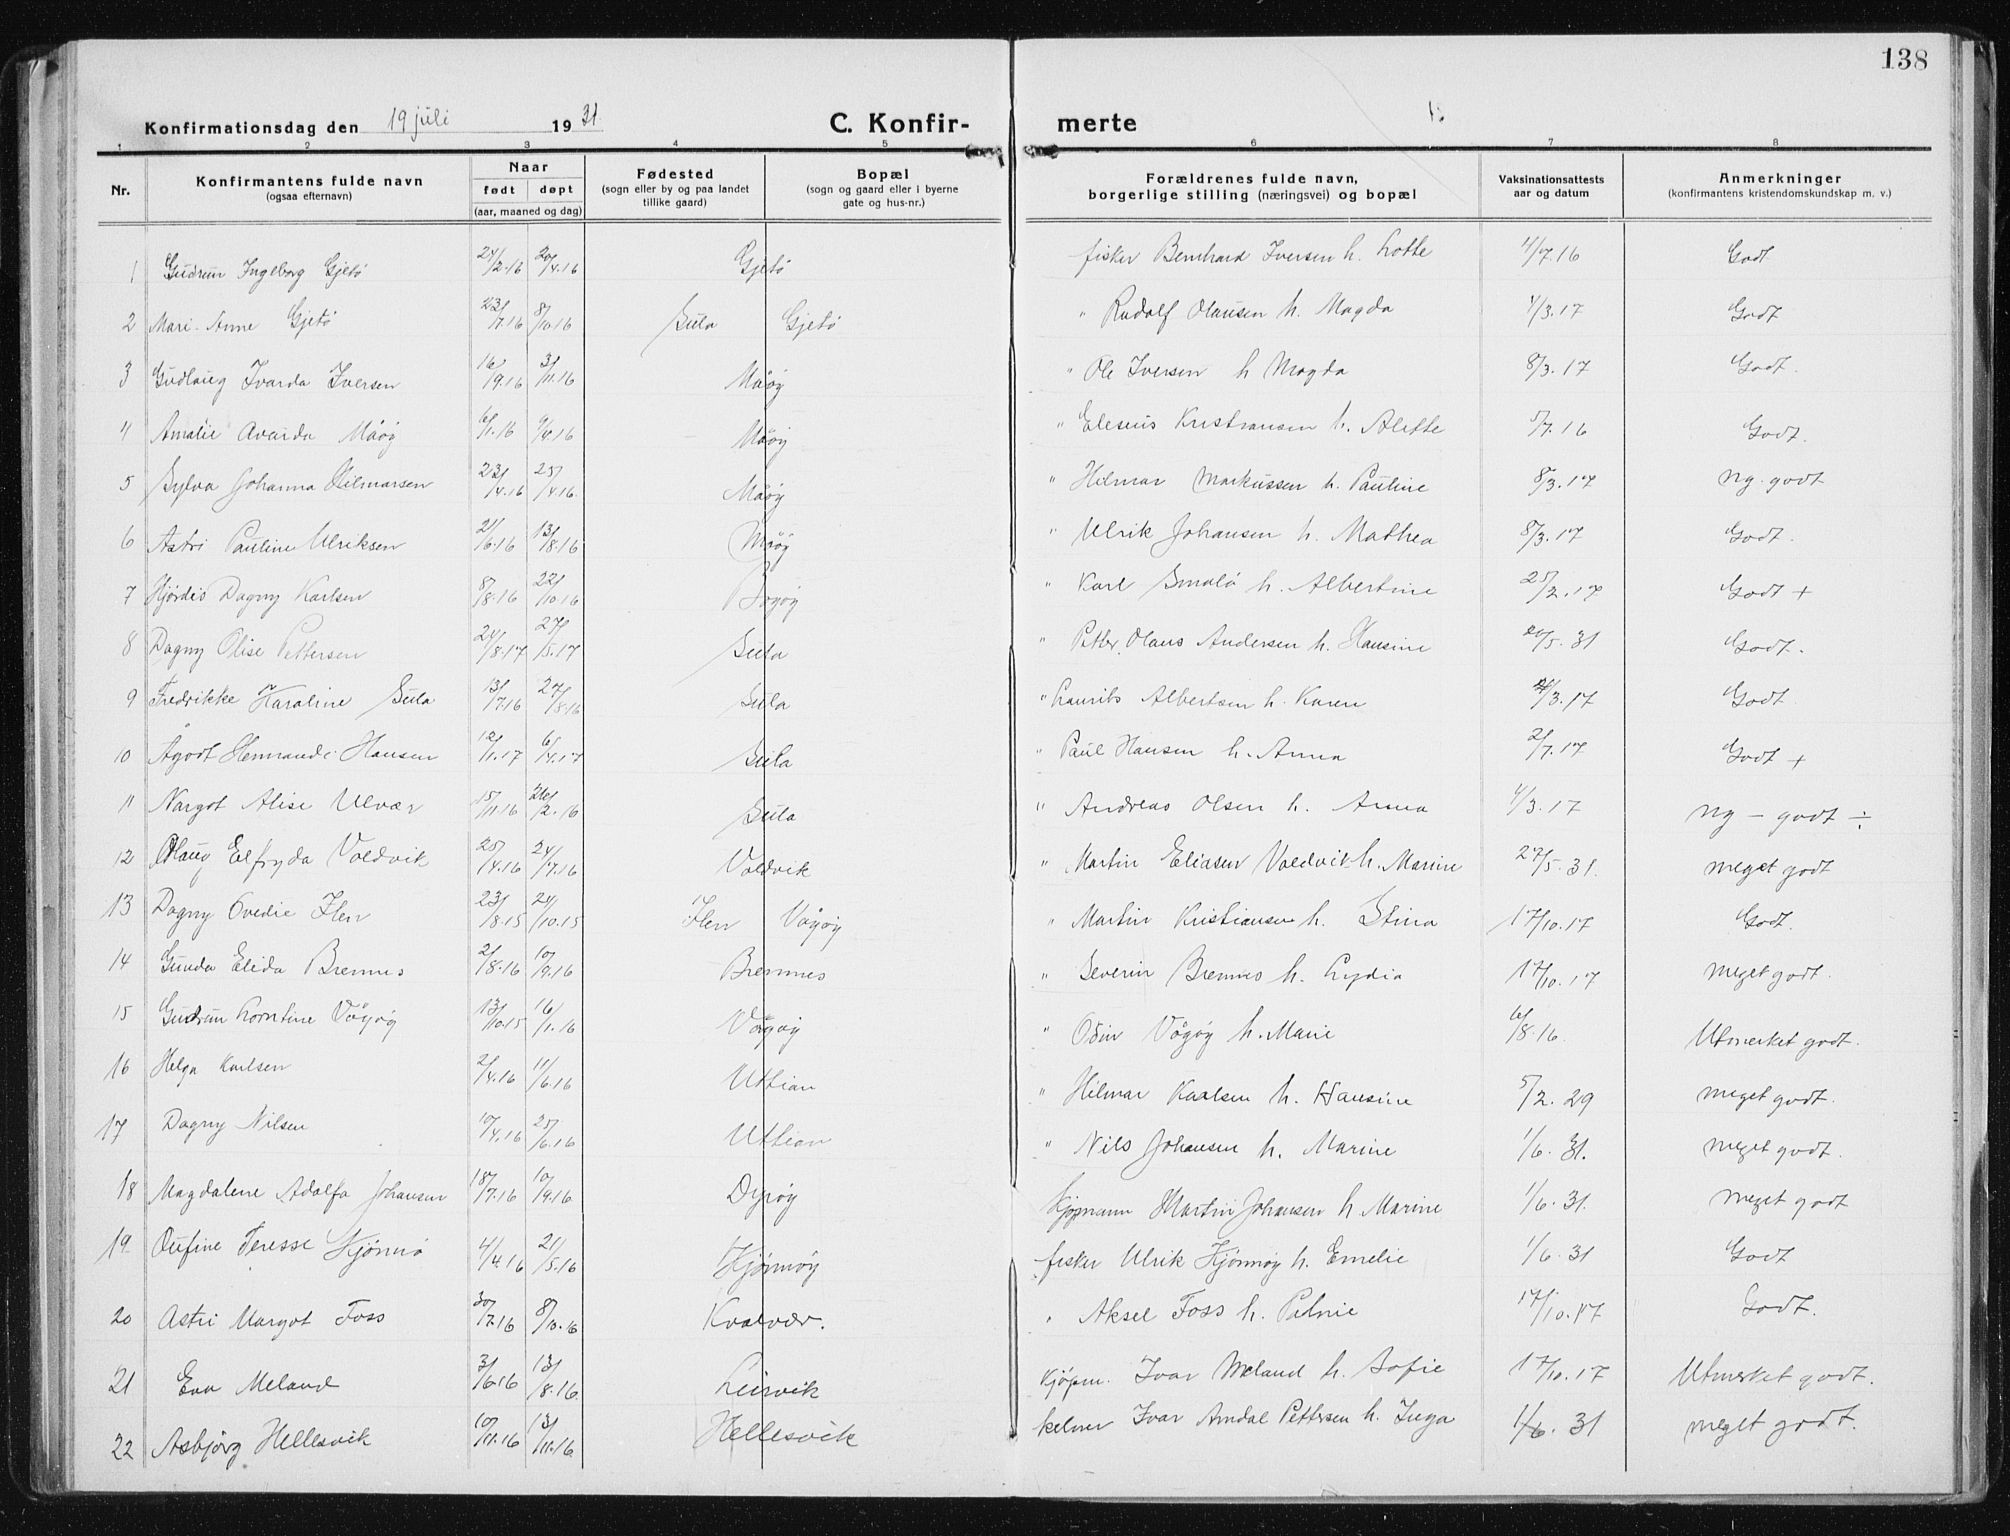 138
Konfirmationsdag den 19 juli 1931. C. Konfirmerte
1 2 3 4 5 6 7 8
Nr. Konfirmantens fulde navn (ogsaa efternavn) Naar født døpt (aar, maaned og dag) Fødested (sogn eller by og paa landet tillike gaard) Bopæl (sogn og gaard eller i byerne gate og hus-nr.) Forældrenes fulde navn, borgerlige stilling (næringsvei) og bopæl Vaksinationsattests aar og datum Anmerkninger (konfirmantens kristendomskundskap m. v.)
1 Gudrun Ingeborg Gjetø 24/2.16 20/4.16 Gjetø fisker Bernhard Iversen h. Lotte 4/7.16 Godt
2 Mari-Anne Gjetø 23/7.16 8/10.16 Sula Gjetø " Rudolf Olausen h. Magda 1/3.17 Godt
3 Gudlaug Ivarda Iversen 16/9.16 3/11.16 Måøy " Ole Iversen h Magda 8/3.17 Godt.
4 Amalie Avarda Måøy 6/1.16 9/4.16 Måøy " Elesius Kristiansen h. Alette 5/7.16 Godt.
5 Sylva Johanna Hilmarsen 23/4.16 25/4.16. Måøy " Hilmar Markussen h. Pauline 8/3.17 Ng. godt
6 Astri Pauline Ulriksen 2/6.16 13/8.16 Måøy " Ulrik Johansen h. Mathea 8/3.17 Godt.
7 Hjørdis Dagny Karlsen 8/8.16 22/10.16 Bogøy " Karl Smalø h. Albertine 25/2.17 Godt +
8 Dagny Olise Pettersen 24/8.17 27/5.17 Sula " Petter Olaus Andersen h. Hansine 20/5.31 Godt.
9 Fredrikke Karoline Sula 13/7.16 27/8.16 Sula " Laurits Albertsen h. Karen /3.17 Godt
10 Agodt Hermande Hansen 12/1.17 6/4.17 Sula " Paul Hansen h. Anna 2/7.17 Godt +
11 Margot Alise Ulvær 15/11.16 26/2.16 Sula " Andreas Olsen h. Anna 1/3.17 Ng - godt ÷
12 Olaug Elfryda Valdvik 25/4.16 24/7.16 Valdvik " Martin Eliasen Valdvik h. Marine 27/5.31. meget godt
13 Dagny Ovedie Flen 23/8.15 24/10.15 Flen Vågøy " Martin Kristiansen h. Stina 17/10.17 Godt.
14 Gunda Elida Bremnes 2/8.16 10/9.16 Bremnes " Severin Bremnes h. Lydia 17/10.17 meget godt.
15 Gudrun Lorntine Vågøy 13/10.15 16/1.16 Vågøy " Odin Vågøy h. Marie 6/8.16 Utmerket godt.
16 Helga Karlsen 2/4.16 11/6.16 Uttian " Hilmar Karlsen h. Hansine 5/2.29 meget godt.
17 Dagny Nilsen 10/4.16 25/6.16 Uttian " Nils Johansen h. Marine 1/6.31. meget godt.
18 Magdalene Adolfa Johansen 18/7.16 10/9.16 Dyrøy Kjøpmann Martin Johansen h Marine 1/6.31. meget godt
19 Oufine Teresse Hjönnø 4/4.16 21/5.16 Hjönnøy fisker Ulrik Hjönnøy h. Emelie 1/6.31 Godt
20 Astri Margot Foss 30/7.16 8/10.16 Kvalvær. " Aksel Foss h. Palnie 17/10.17 Godt.
21 Eva Meland 3/6.16 13/8.16. Leirvik Kjøpm. Ivar Meland h. Sofie 17/10.17 Utmerket godt.
22 Asbjörg Hellesvik 10/11.16 13/11.16 Hellesvik kelner Ivar Amdal Pettersen h. Inga 1/6.31 meget godt.